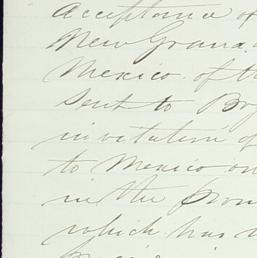 Acceptance of
New Grana
Mexico. of th
Sent to Bo
invitation of
to Mexico on
in the prom
which has